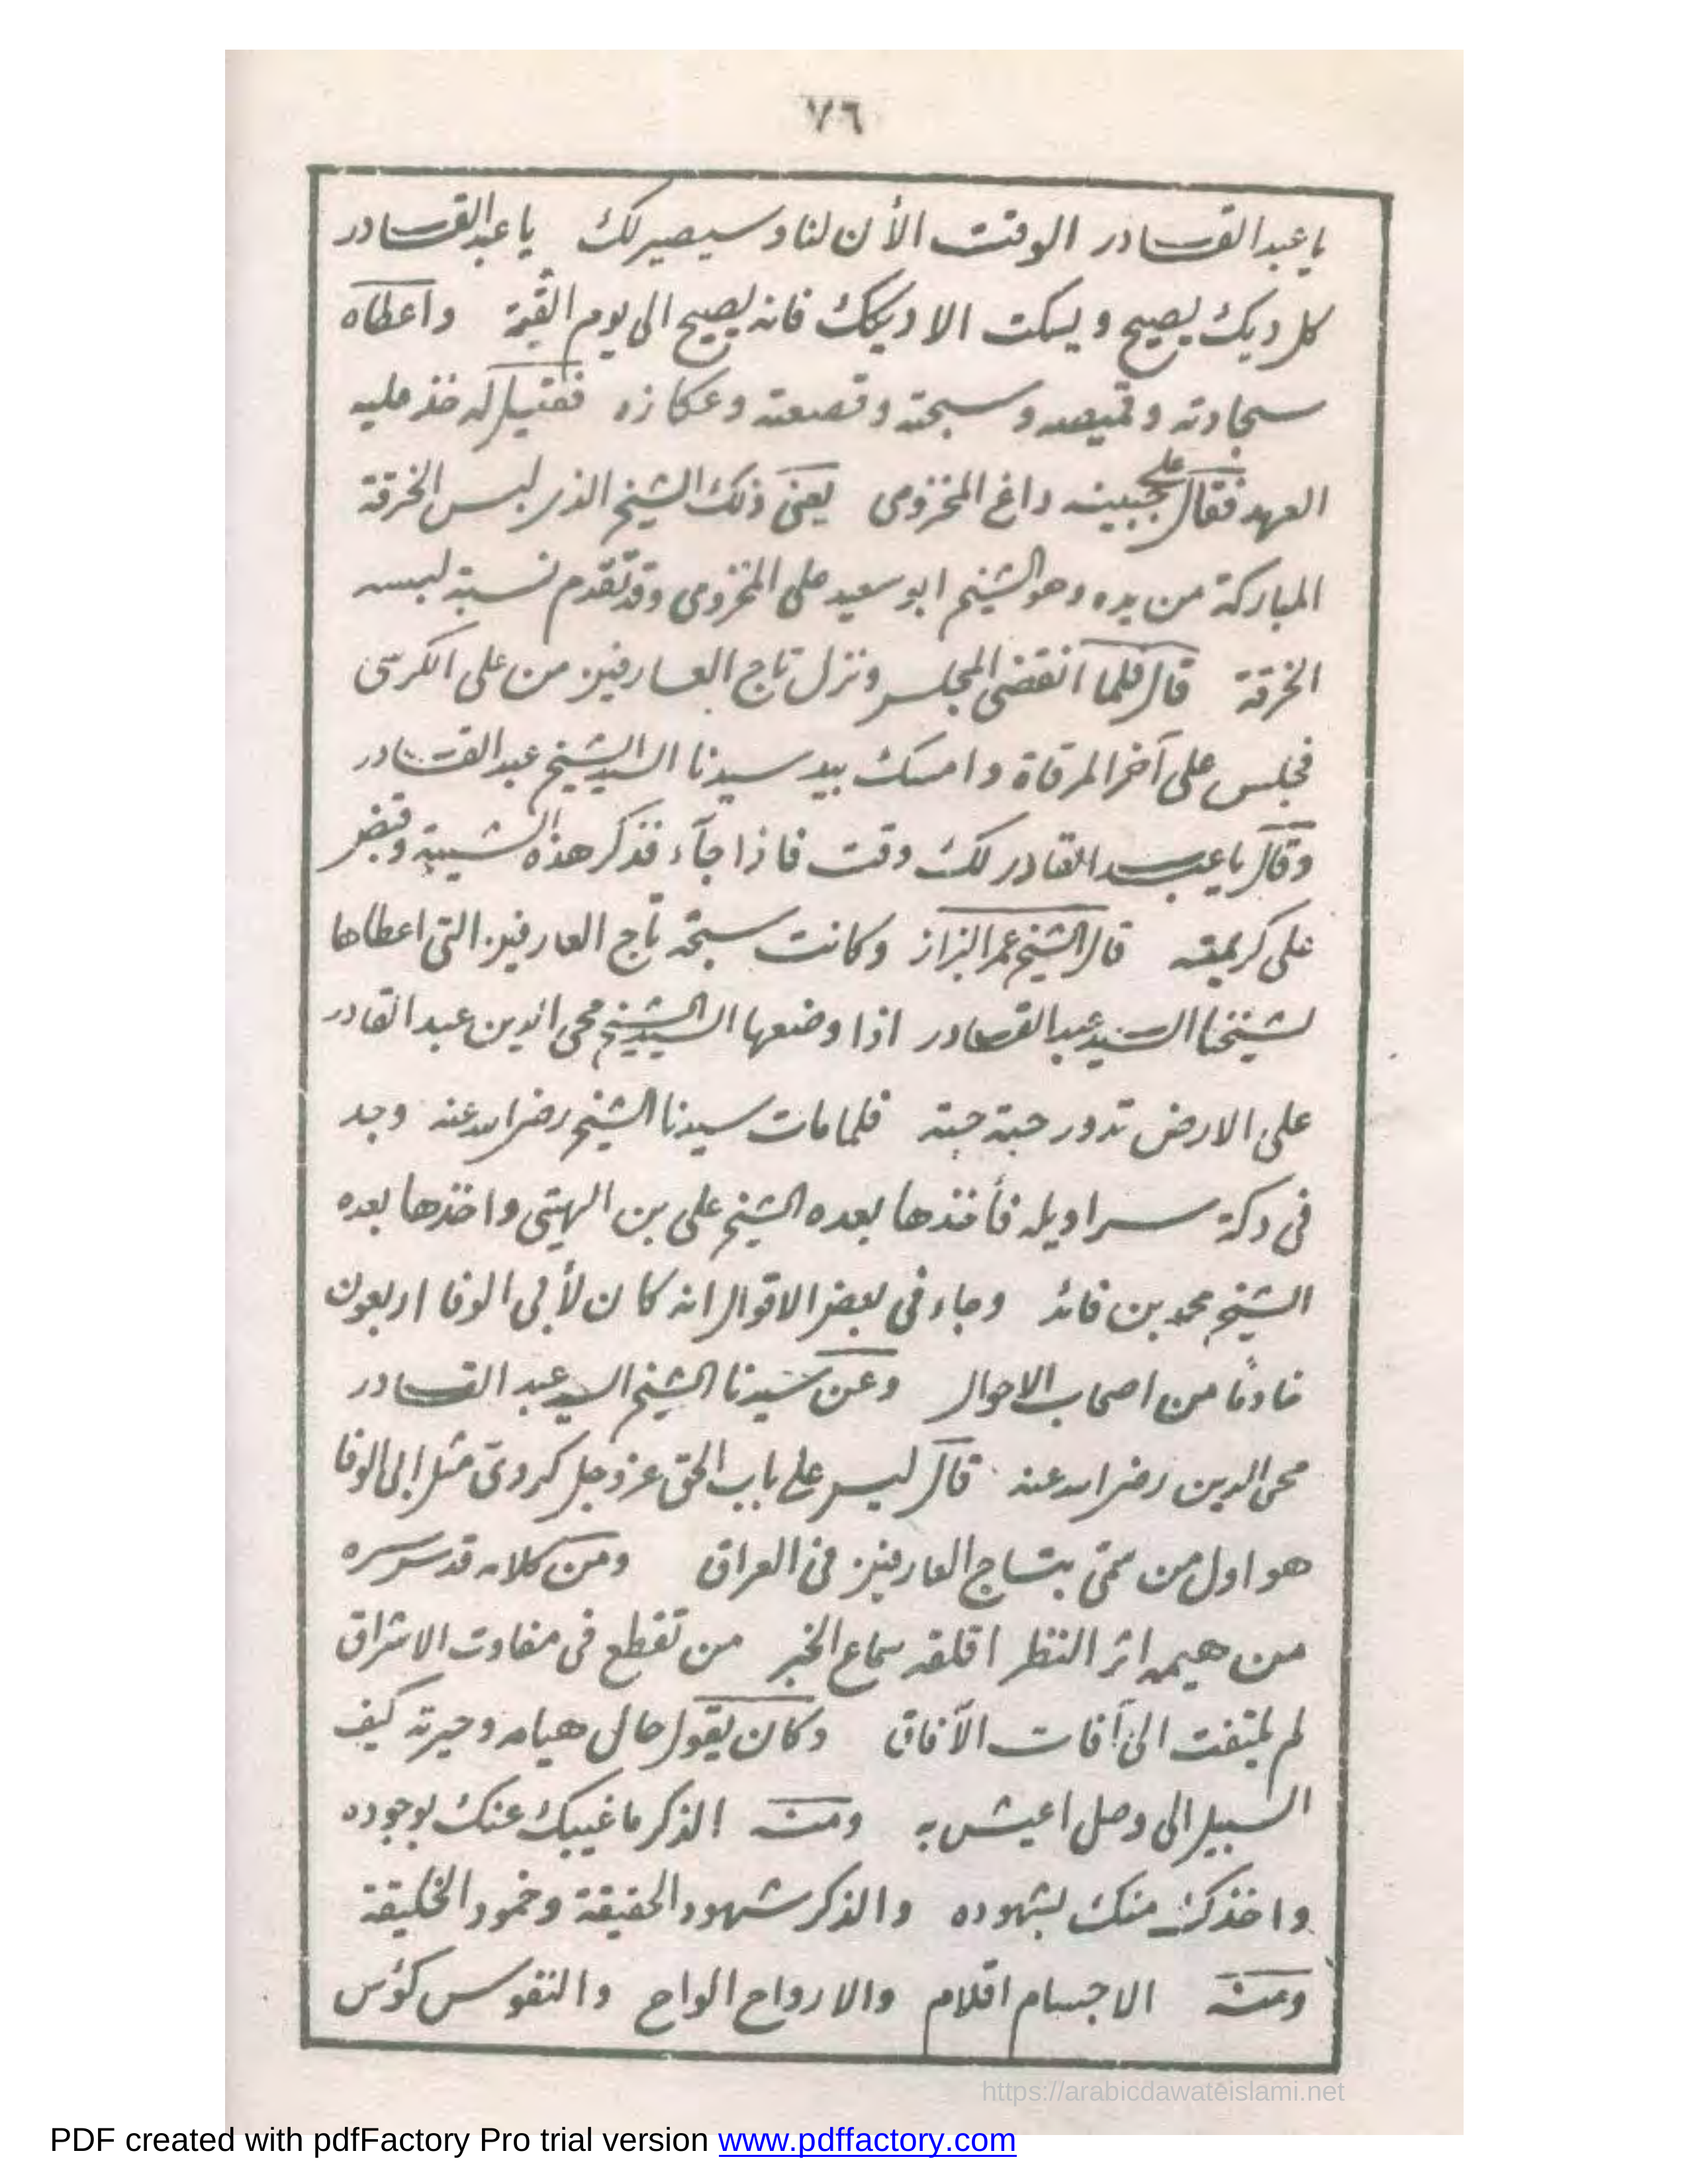 ٧٦
يا عبد القادر الوقت الأن لنا وسيصير لك يا عبد القادر
كل ديك يصيح ويسكت الا ديكك فانه يصيح الى يوم القيمة واعطاه
سجادته وقميصه وسبحته وقصعته وعكازه فقيل له خذ عليه
العهد فقال على جبينه داغ المخزومى يعنى ذلك الشيخ الذى لبس الخرقة
المباركة من يده وهو الشيخ ابو سعيد على المخزومى وقد تقدم نسبة لبسه
الخرقة قال فلما انقضى المجلس ونزل تاج العارفين من على الكرسى
فجلس على آخر المرقاة وامسك بيد سيدنا السيد الشيخ عبد القادر
وقال يا عبد القادر لك وقت فاذا جآء فذكر هذه الشيبة وقبض
على كريمته قال الشيخ عمر البزاز وكانت سبحة تاج العارفين التى اعطاها
لشيخنا السيد عبد القادر اذا وضعها السيد الشيخ محى الدين عبد القادر
على الارض تدور حبة حبة فلما مات سيدنا الشيخ رضى الله عنه وجد
فى دكة سراويله فأخذها بعده الشيخ على بن الهيتى واخذها بعده
الشيخ محمد بن قائد وجاء فى بعض الاقوال انه كان لأبى الوفا اربعون
خادمًا من اصحاب الاحوال وعن سيدنا الشيخ السيد عبد القادر
محى الدين رضى الله عنه قال ليس على باب الحق عز وجل كردى مثل ابى الوفا
هو اول من سمّى بتاج العارفين فى العراق ومن كلامه قدس سره
من هيمه اثر النظر اقلقه سماع الخبر من تقطع فى مفاوت الاشراق
لم يلتفت الى آفات الآفاق وكان يقول حال هيامه وحيرته كيف
السبيل الى وصل اعيش به ومنه الذكر ما غيبك عنك بوجوده
واخذك منك بشهوده والذكر شهود الحقيقة وخمود الخليقة
ومنه الاجسام اقلام والارواح الواح والنفوس كؤس
https://arabicdawateislami.net
PDF created with pdfFactory Pro trial version www.pdffactory.com